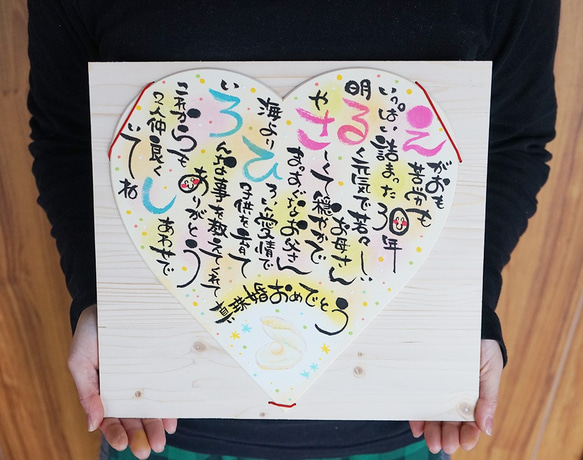 えがおも
苦労も
いっぱい詰まった30年
明るく元気で若々しい
お母さん
やさしくて穏やかで
まっすぐなお父さん
海より
ひろい愛情で
子供を育て
いろんな事を教えてくれて
ありがとう
これからも
2人仲良く
しあわせで
いてね
真珠婚おめでとう